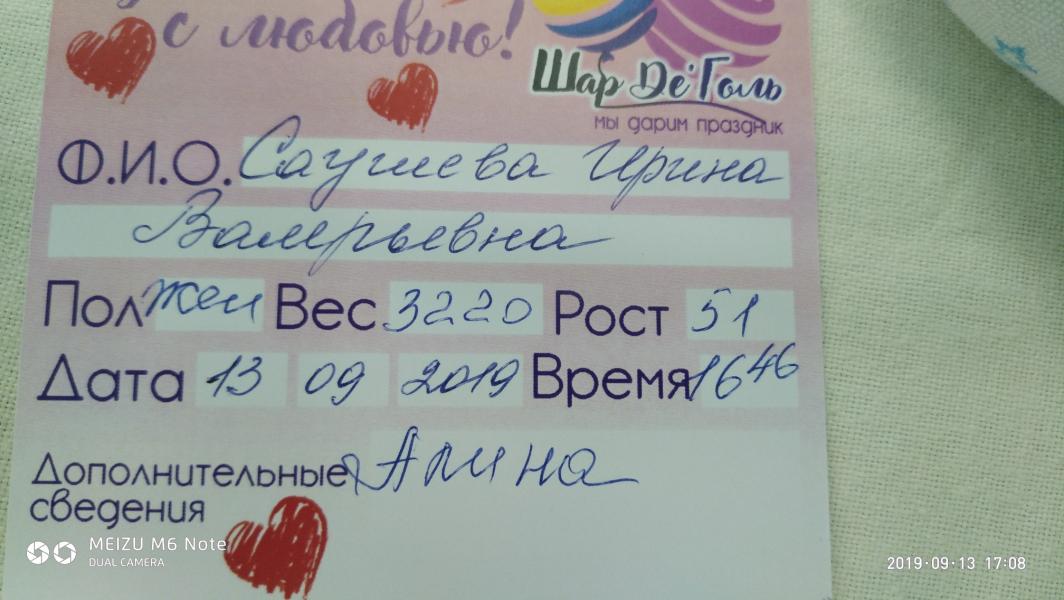 с любовью!
Шар Де'Голь
мы дарим праздник
Ф.И.О. Саушева Ирина
Валерьевна
Пол жен Вес 3220 Рост 51
Дата 13 09 2019 Время 16 46
Дополнительные Алина
сведения
MEIZU M6 Note
DUAL CAMERA
2019-09-13 17:08